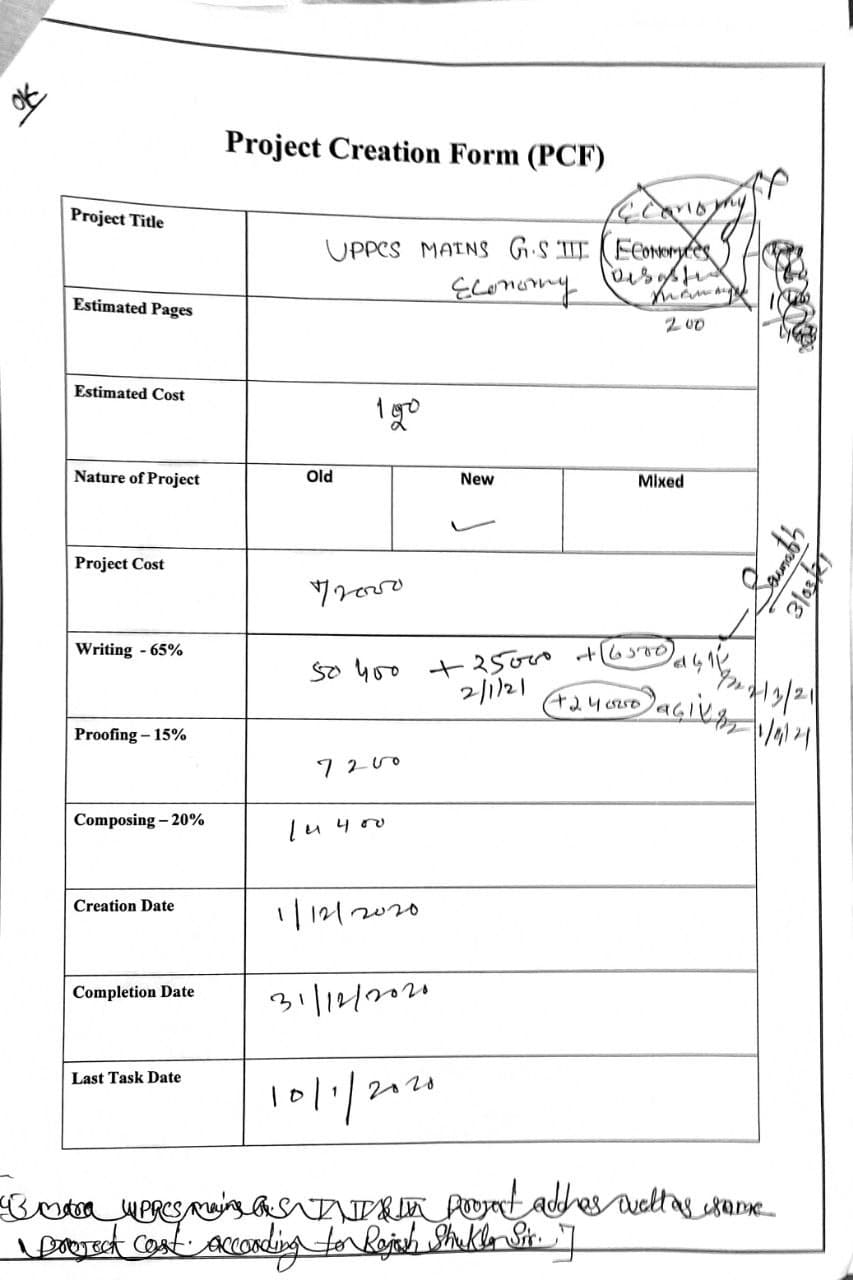 OK
Project Creation Form (PCF)
Project Title
UPPCS MAINS G.S III
Economy
Economy
Economics
Disaster
200
Estimated Pages
Estimated Cost
Nature of Project Old New Mixed
✓
Project Cost
72000
Saurabh
3/03/21
Writing - 65%
50400 + 25000 + 6500
2/1/21
2/3/21
+24000
1/4/21
Proofing – 15%
7200
Composing – 20%
14400
Creation Date 1/12/2020
Completion Date 31/12/2020
Last Task Date 10/1/2020
UPPCS mains G.S I, II & III project as well as same
project cost. according to Rajesh Shukla Sir.]